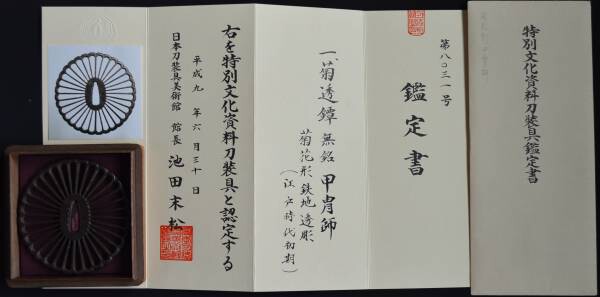 特別文化資料刀装具鑑定書
第八〇三一号
鑑定書
一、菊透鐔 無銘 甲冑師
菊花形 鉄地 透彫
(江戸時代初期)
右を特別文化資料刀装具と認定する
平成九年六月三十日
日本刀装具美術館 館長 池田末松